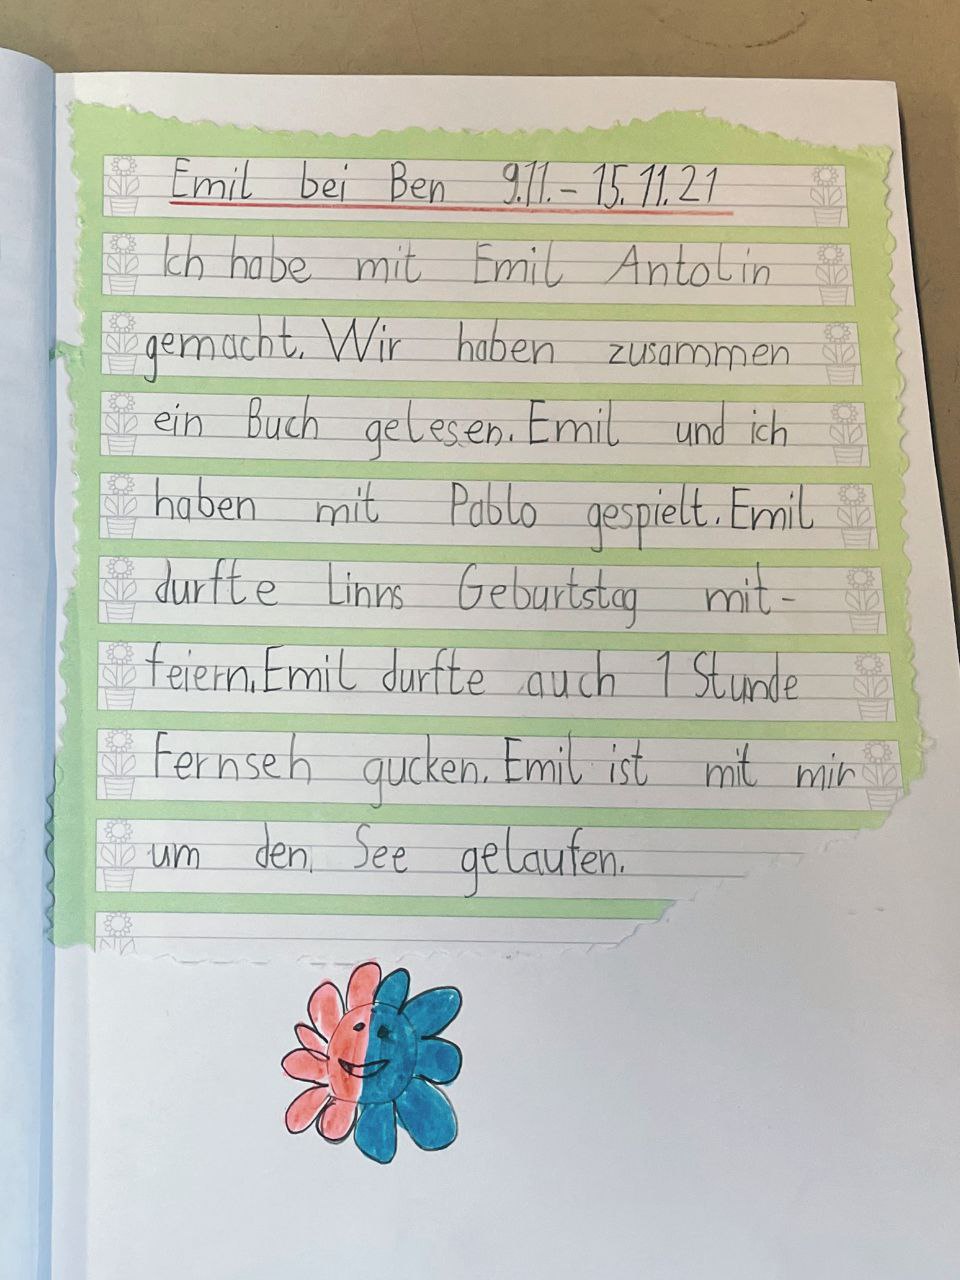 Emil bei Ben 9.11.-15.11.21
Ich habe mit Emil Antolin
gemacht. Wir haben zusammen
ein Buch gelesen. Emil und ich
haben mit Pablo gespielt. Emil
durfte Linns Geburtstag mit-
feiern. Emil durfte auch 1 Stunde
Fernseh gucken. Emil ist mit mir
um den See gelaufen.